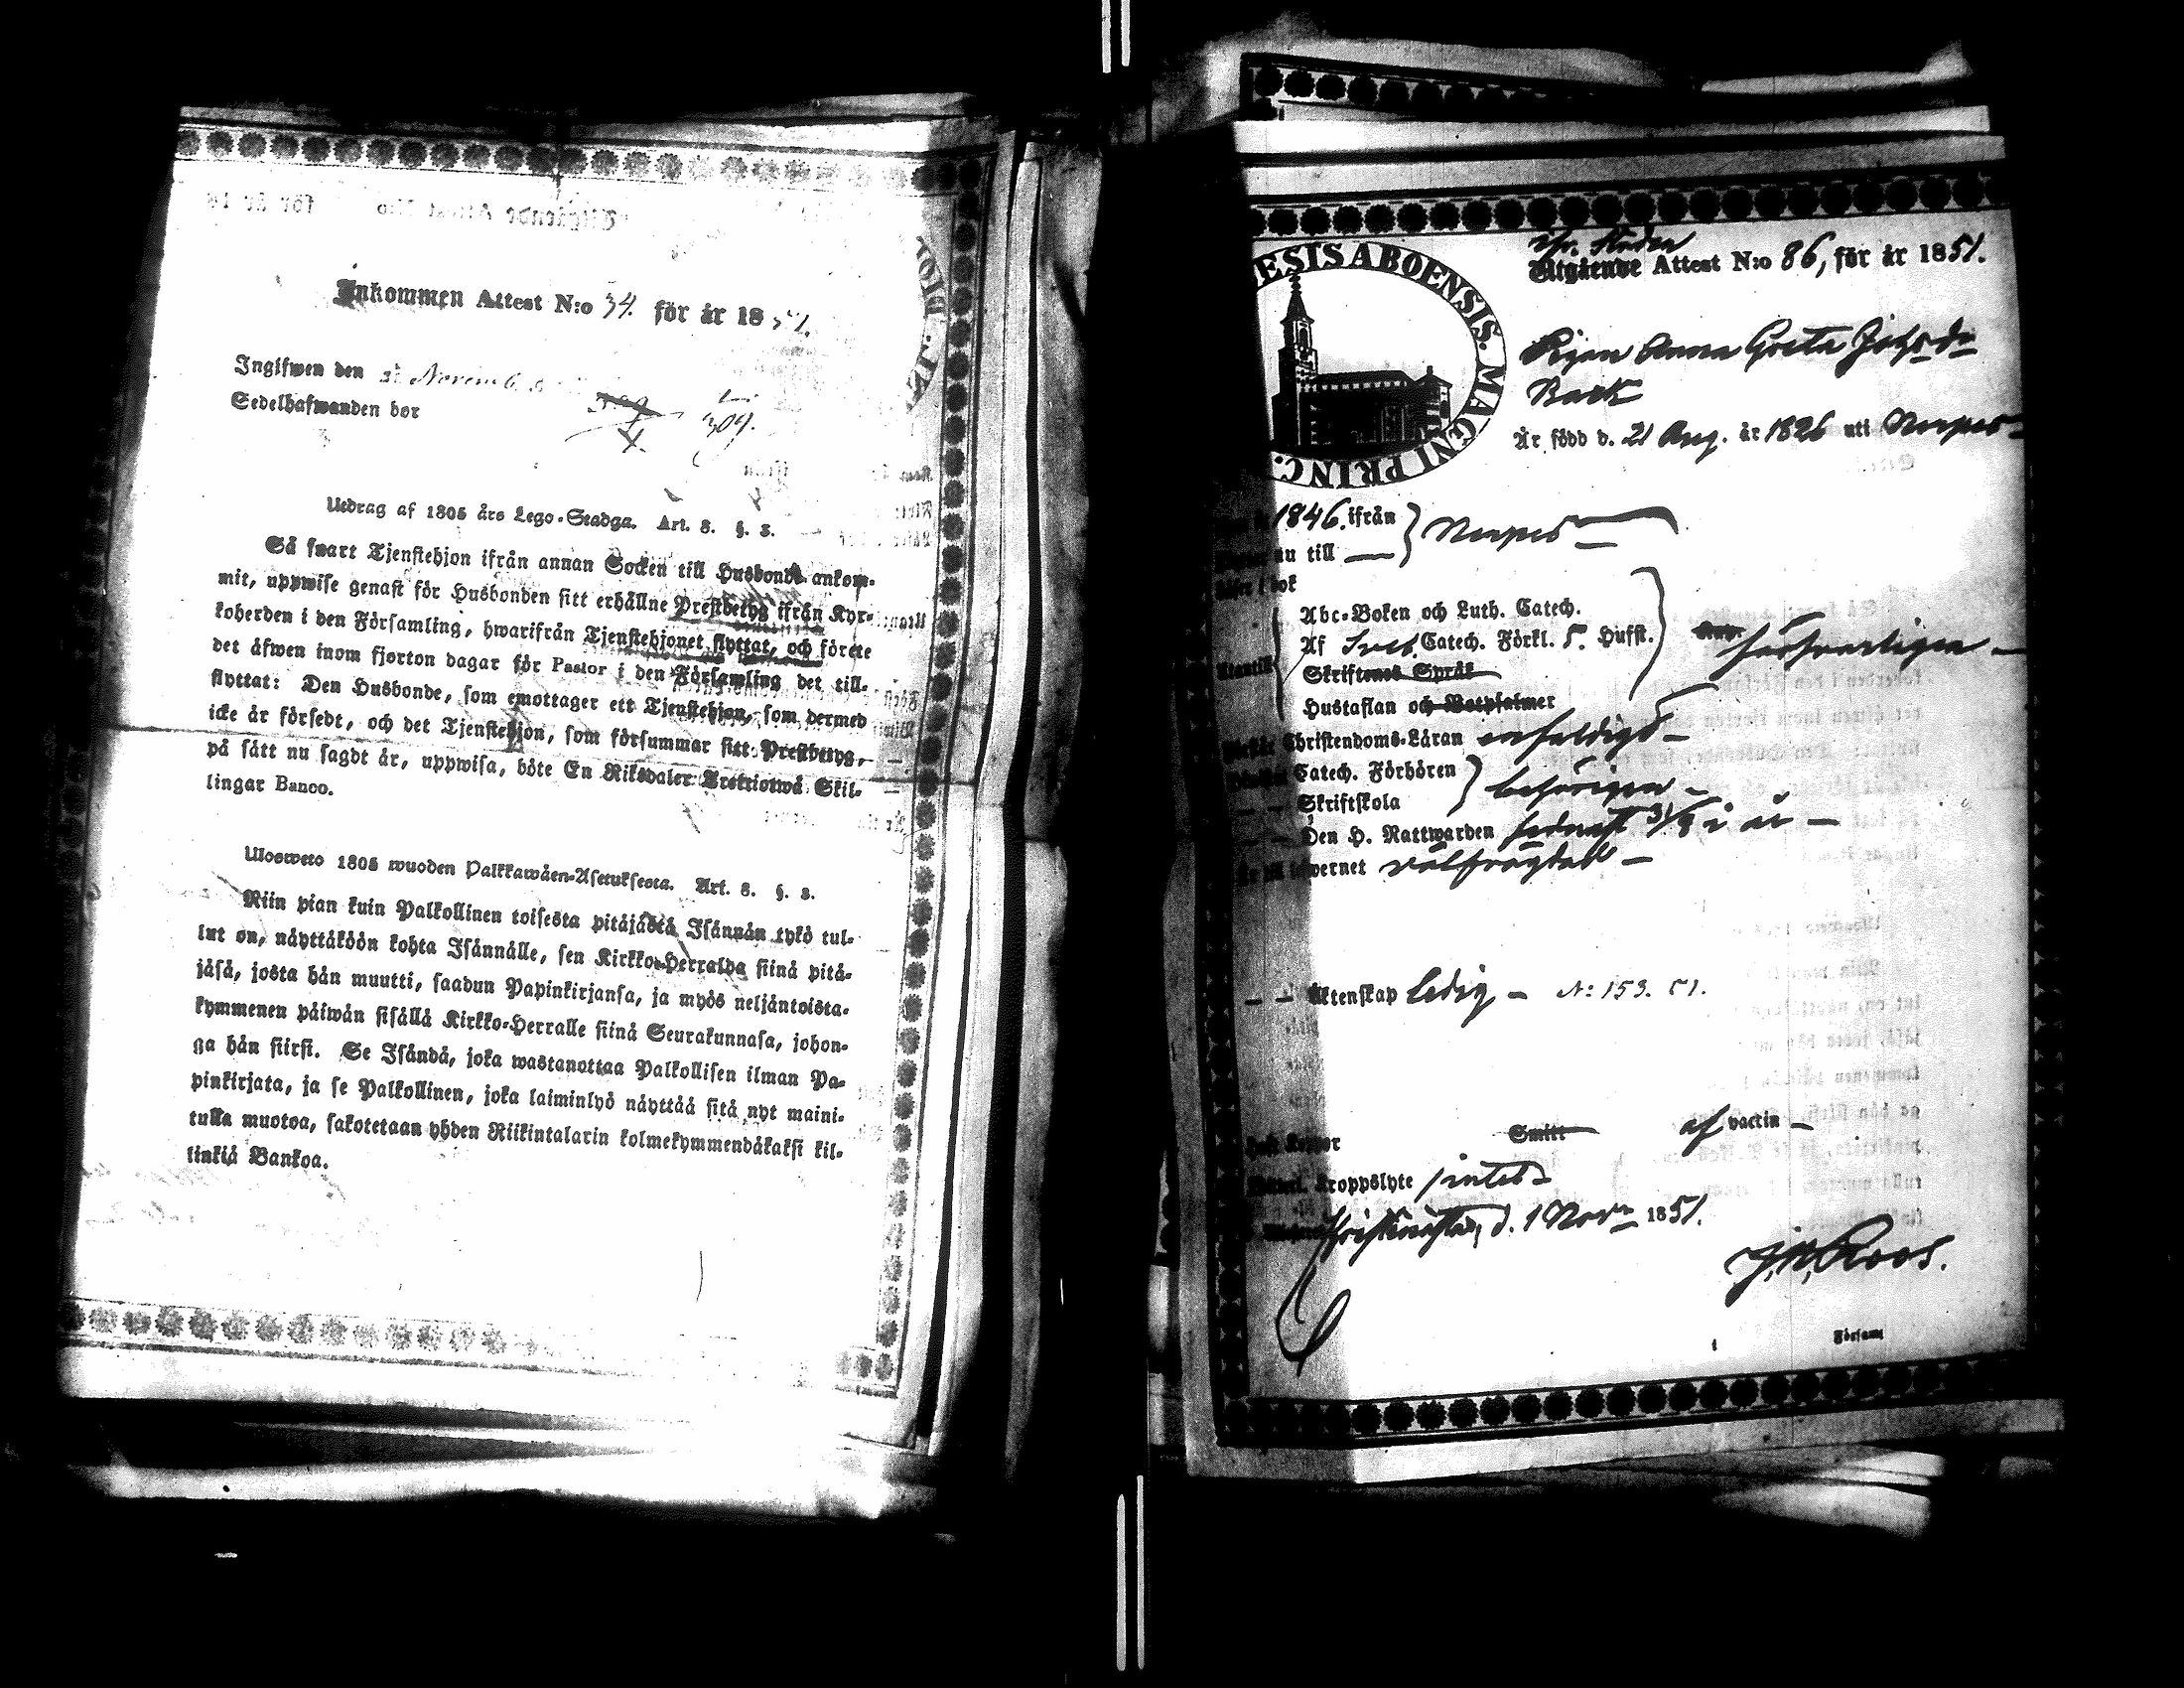 Inkommen Attest N:o 34. för år 1851.
Ingifwen den 3 November
Sedelhafwanden bor
309.
Utdrag af 1805 års Lego-Stadga. Art. 8. §. 3.
Så snart Tjenstehjon ifrån annan Socken till Husbonde ankom-
mit, uppwise genast för Husbonden sitt erhållne Prestbetyg ifrån Kyr-
koherden i den Församling, hwarifrån Tjenstehjonet flyttat, och förete
det äfwen inom fjorton dagar för Pastor i den Församling det till-
flyttat: Den Husbonde, som emottager ett Tjenstehjon, som dermed
icke är försedt, och det Tjenstehjon, som försummar sitt Prestbetyg,
på sätt nu sagdt är, uppwisa, böte En Riksdaler Trettiotwå Skil-
lingar Banco.
Uloswéto 1805 wuoden Palkkawäen-Asetuksesta. Art. 8. §. 3.
Niin pian kuin Palkollinen toisesta pitäjästä Isännän tykö tul-
lut on, näyttäköön kohta Isännälle, sen Kirkko-Herralda siinä pitä-
jäsä, josta hän muutti, saadun Papinkirjansa, ja myös neljäntoista-
kymmenen päiwän sisällä Kirkko-Herralle siinä Seurakunnasa, johon-
ga hän siirsi. Se Isändä, joka wastanottaa Palkollisen ilman Pa-
pinkirjata, ja se Palkollinen, joka laiminlyö näyttää sitä nyt maini-
tulla muotoa, sakotetaan yhden Riikintalarin kolmekymmendäkaksi kil-
linkiä Bankoa.
ESIS ABOENSIS. MAGNI PRINC.
Utgående Attest N:o 86, för år 1851.
Pigan Anna Greta Johsdr
Back
Är född d. 21 Aug. år 1826 uti Nerpes
1846. ifrån
Nerpes
nu till
bok
Abc-Boken och Luth. Catech.
Af Sveb. Catech. Förkl. 5. Hufst.
försvarligen
Utantill
Skriftenes Språk
Hustaflan och Botpsalmer
Christendoms-Läran enfaldigt
Catech. Förhören
behörigen
Skriftskola
Den H. Nattwarden sednast 31/8 i år
lefwernet välfrägdad
Äktenskap ledig N: 153. 51.
Haft Koppor Smitt af vaccin
Kroppslyte intet
Christinestad, d. 1 Novr 1851.
J. N. Roos.
Församl